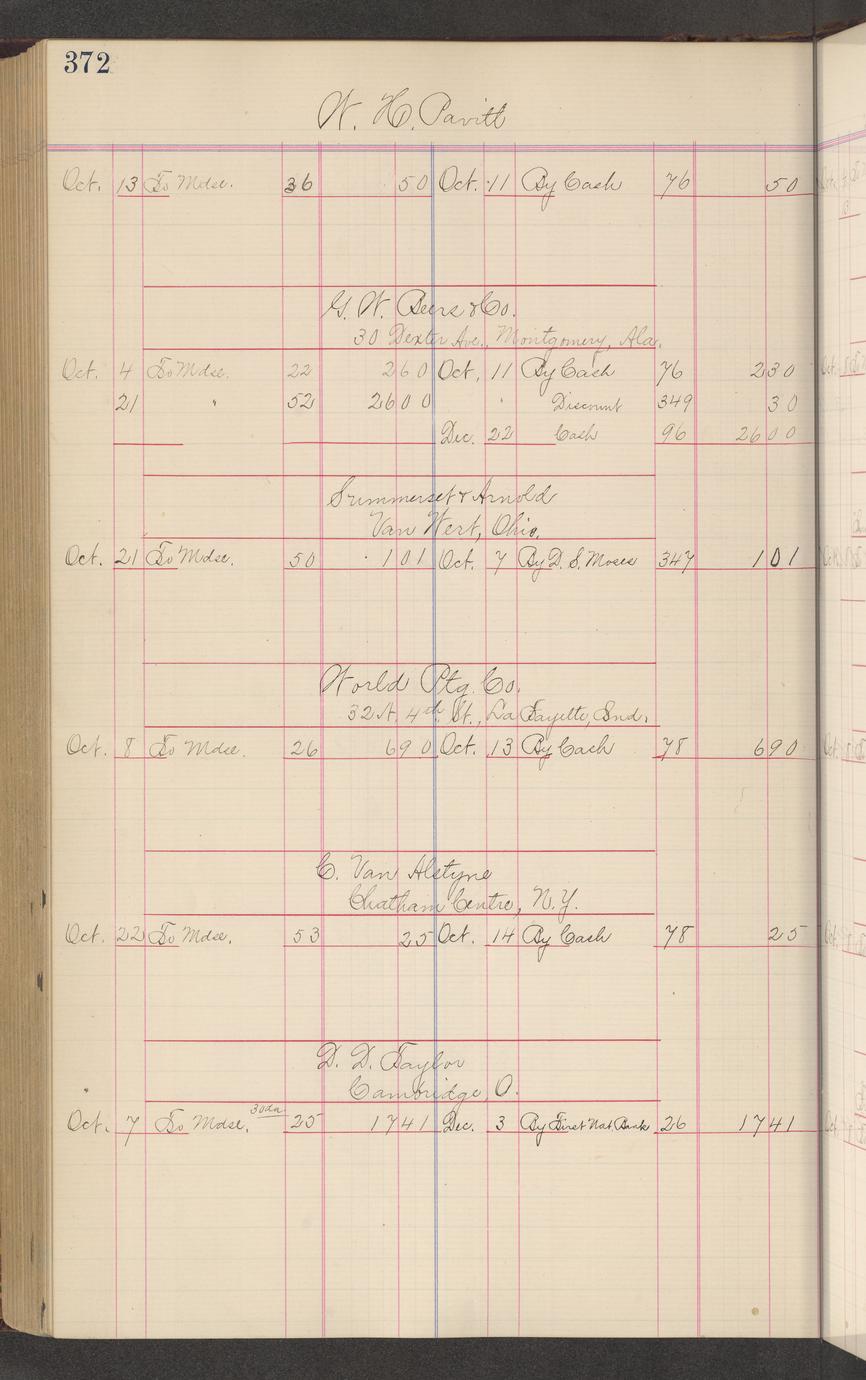 372
W. H. Pavitt
Oct. 13 To Mdse. 36 50 Oct. 11 By Cash 76 50
G. W. Beers & Co.
30 Dexter Ave., Montgomery, Ala.
Oct. 4 To Mdse. 22 260 Oct. 11 By Cash 76 230
21 " 52 2600 " Discount 349 30
Dec. 22 Cash 96 2600
Summerset & Arnold
Van Wert, Ohio.
Oct. 21 To Mdse. 50 101 Oct. 7 By D. S. Moses 347 101
World Ptg. Co.
32 N. 4th St., La Fayette, Ind.
Oct. 8 To Mdse. 26 690 Oct. 13 By Cash 78 690
C. Van Alstyne
Chatham Centre, N.Y.
Oct. 22 To Mdse. 53 25 Oct. 14 By Cash 78 25
D. D. Taylor
Cambridge, O.
Oct. 7 To Mdse. 30da 25 1741 Dec. 3 By First Nat. Bank 26 1741